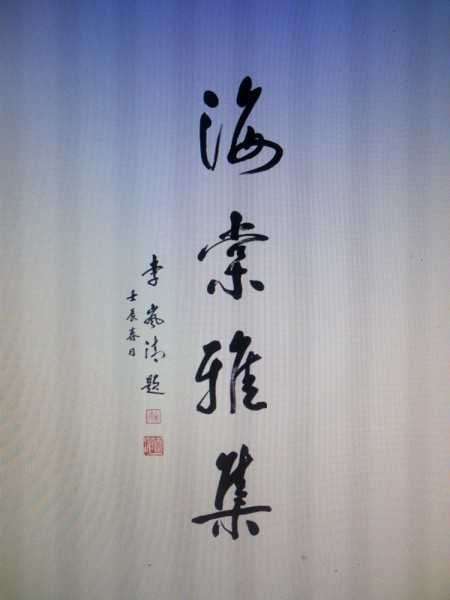 海棠雅集
李岚清题
壬辰春日